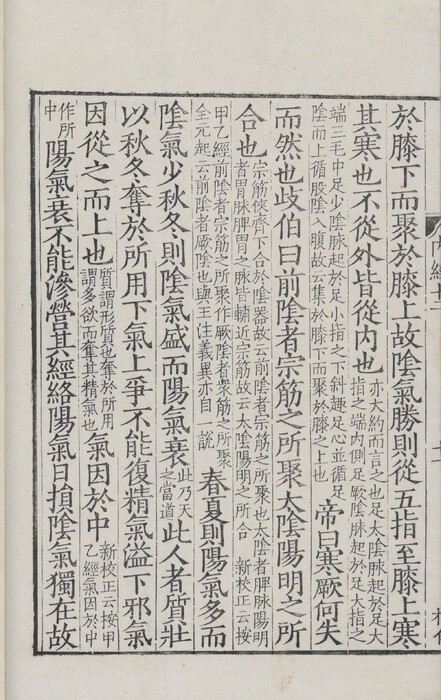 於膝下而聚於膝上故陰氣勝則從五指至膝上寒
其寒也不從外皆從内也
亦大約而言之也足太陰脉起於足大
指之端内側足厥陰脉起於足大指之
端三毛中足少陰脉起於足小指之下斜趣足心並循足
陰而上循股陰入腹故云集於膝下而聚於膝之上也
帝曰寒厥何失
而然也歧伯曰前陰者宗筋之所聚太陰陽明之所
合也
宗筋俠齊下合於陰器故云前陰者宗筋之所聚也太陰者脾脉陽明
者胃脉脾胃之脉皆輔近宗筋故云太陰陽明之所合 新校正云按
甲乙經前陰者宗筋之所聚作厥陰者衆筋之所聚
全元起云前陰者厥陰也與王注義異亦自一說
春夏則陽氣多而
陰氣少秋冬則陰氣盛而陽氣衰
此乃天
之當道
此人者質壯
以秋冬奪於所用下氣上爭不能復精氣溢下邪氣
因從之而上也
質謂形質也奪於所用
謂多欲而奪其精氣也
氣因於中
新校正云按甲
乙經氣因於中
作所
中
陽氣衰不能滲營其經絡陽氣日損陰氣獨在故